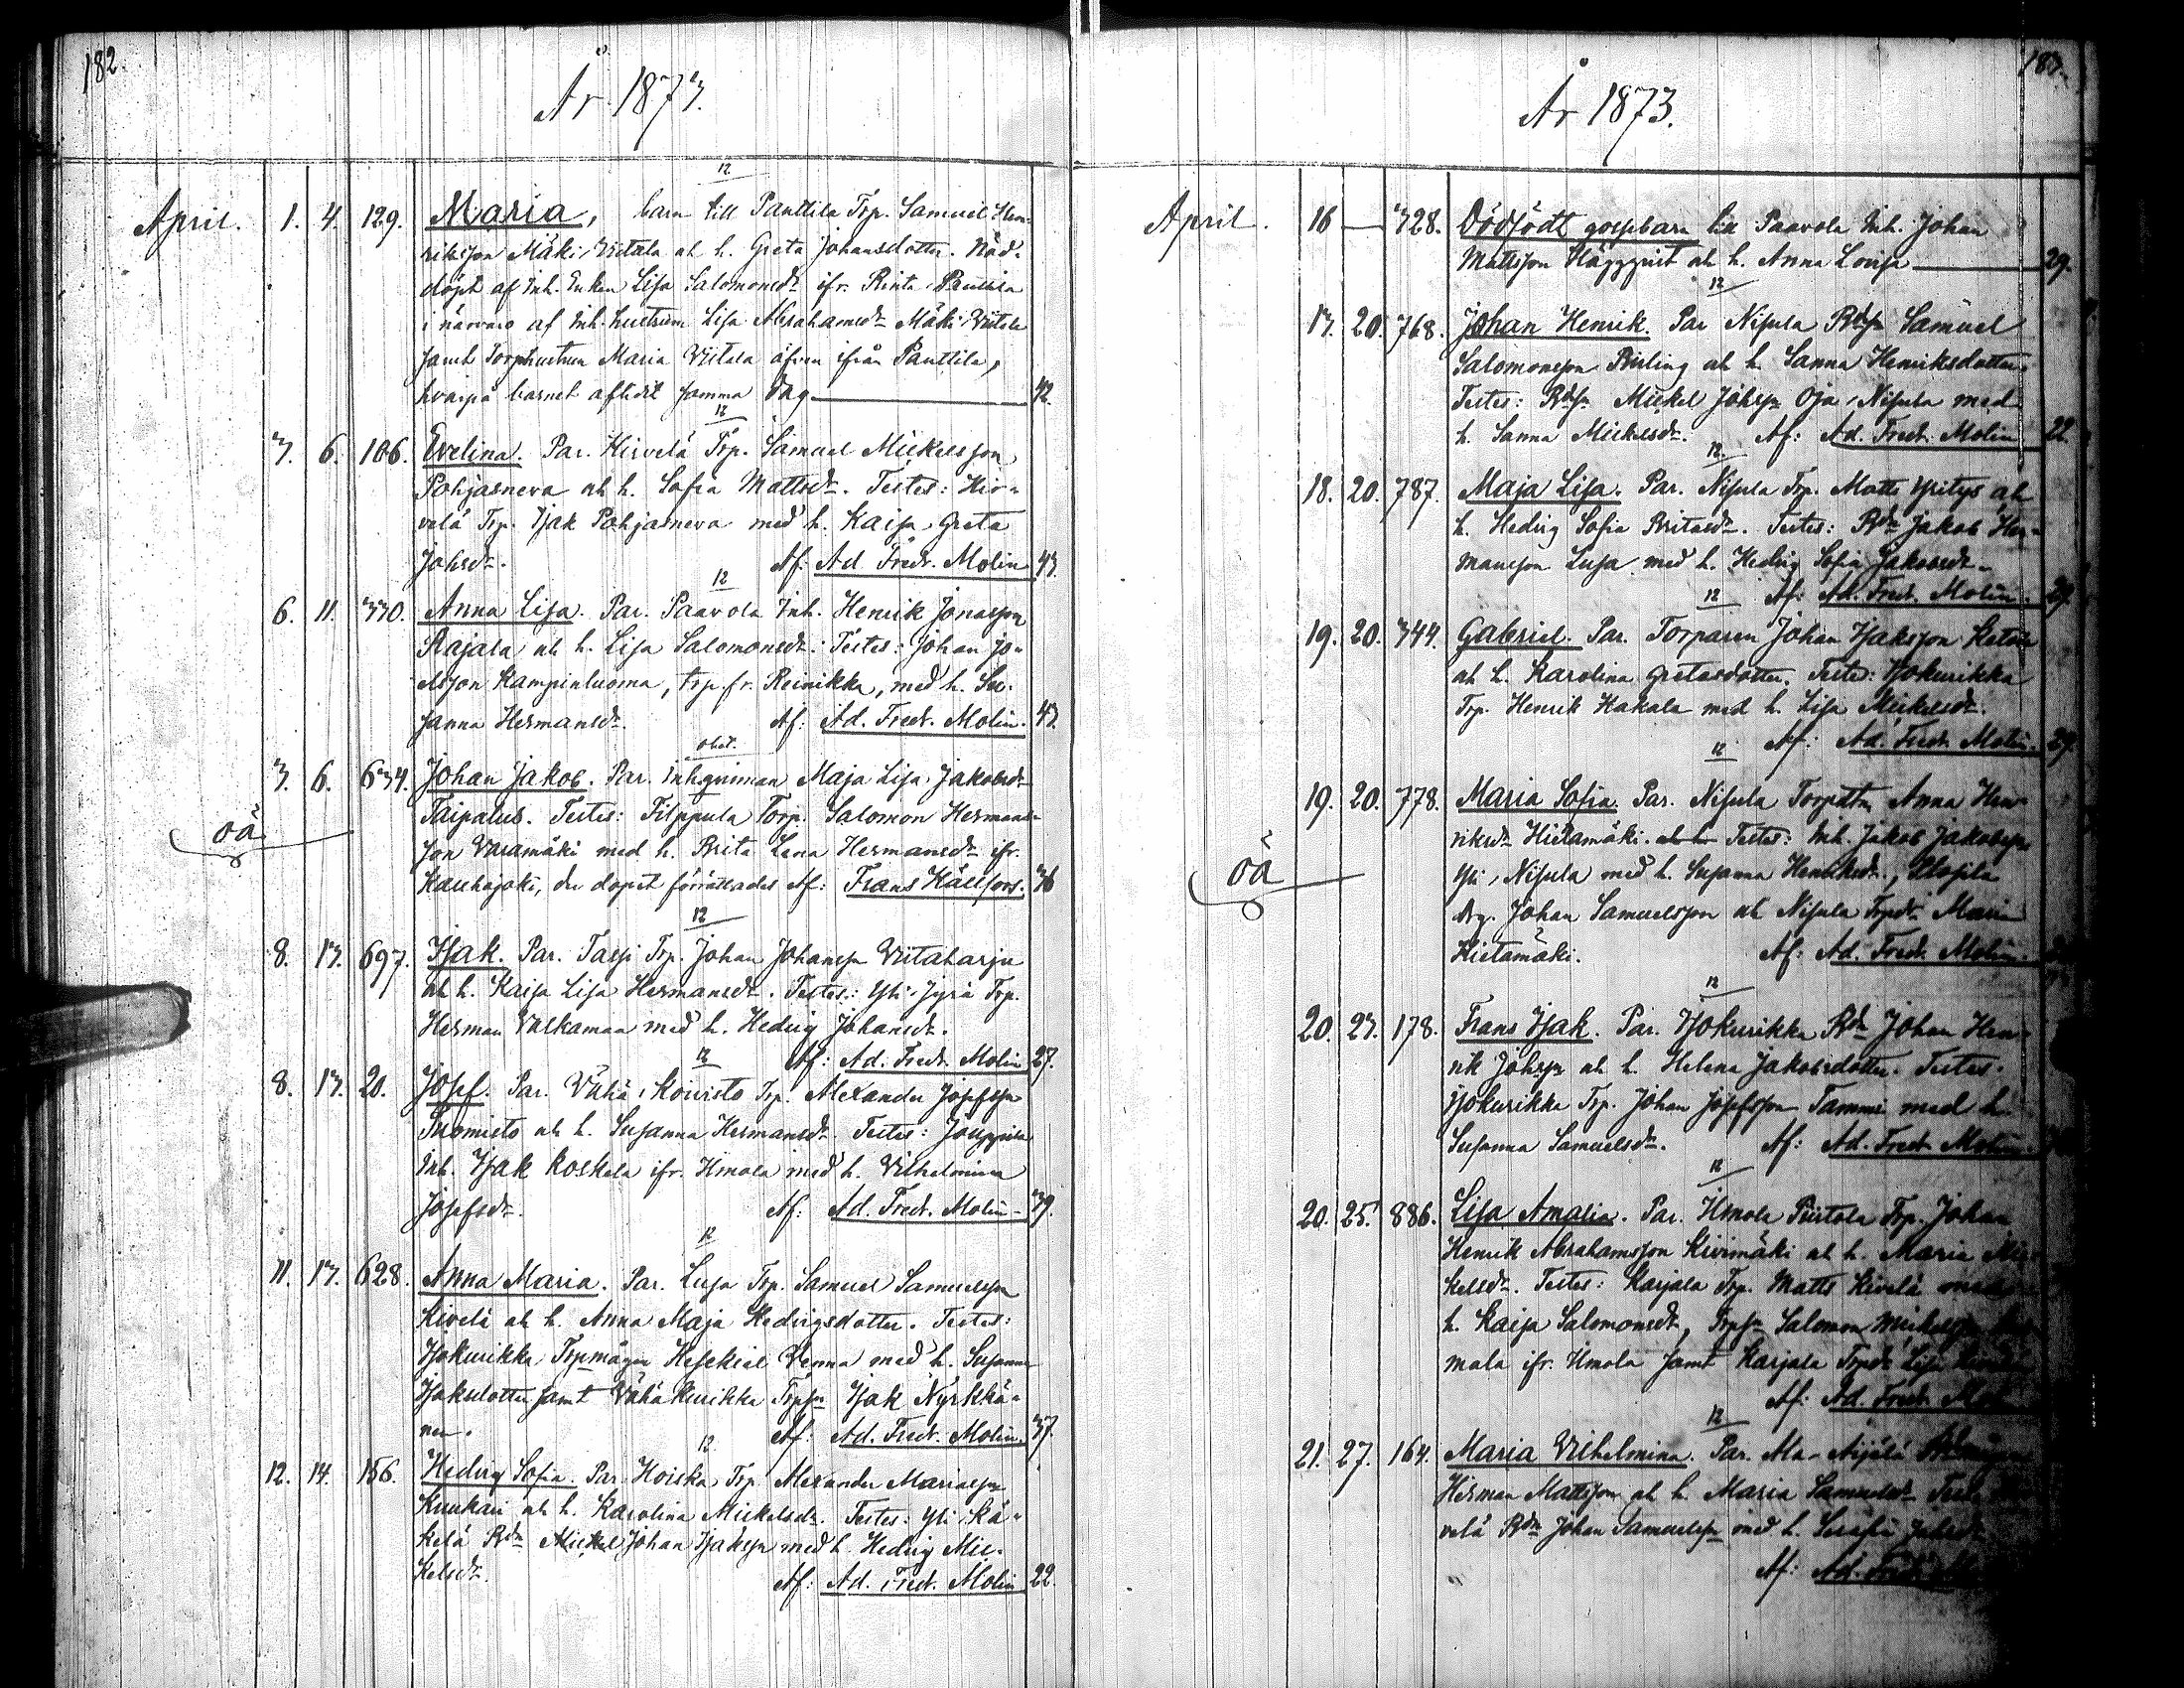 182.
År 1873.
12
April. 1. 4. 129. Maria, barn till Panttila Trp. Samuel Hen-
riksson Mäki Viitala ah h. Greta Johansdotter. Nöd-
döpt af Inh. Enkan Lisa Salomonsdr ifr. Rinta Panttila
i närvaro af Inh. hustrun Lisa Abrahamsdr Mäki Viitala
samt Torphustrun Maria Viitala äfven ifrån Panttila,
hvarpå barnet aflidit samma dag 42.
12
3. 6. 106. Evelina. Par. Hirvelä Trp. Samuel Mickelsson
Pohjasneva ah h. Sofia Mattsdr. Testes: Hir-
velä Trp. Isak Pohjasneva med h. Kaisa Greta
Johsdr. Af: Ad. Fredr. Molin 43.
12
6. 11. 330. Anna Lisa. Par. Paavola Inh. Henrik Jonasson
Rajala ah h. Lisa Salomonsdr. Testes: Johan Jo-
elsson Kampinluoma, trp fr. Reinikka, med h. Su-
sanna Hermansdr. Af: Ad. Fredr. Molin. 43.
obet.
3. 6. 634. Johan Jakob. Par. Inhqvinnan Maja Lisa Jakobsdr
Taipalus. Testes: Filppula Torp. Salomon Hermans-
oä
son Varamäki med h. Brita Lena Hermansdr ifr.
Kauhajoki, der dopet förrättades Af: Frans Hällfors. 36
12
8. 13. 697. Isak. Par. Tassi Trp. Johan Johansson Viitaharju
ah h. Kaisa Lisa Hermansdr. Testes: Yli-Jyrä Trp.
Herman Valkamaa med h. Hedvig Johansdr.
12 Af: Ad. Fredr. Molin 27.
8. 13. 20. Josef. Par. Vähä Koivisto Trp. Alexander Josefsson
Suomisto ah h. Susanna Hermansdr. Testes: Jouppila
Inh. Isak Koskela ifr. Ilmola med h. Vilhelmina
Josefsdr. Af: Ad. Fredr. Molin 39.
12
11. 13. 628. Anna Maria. Par. Lusa Trp. Samuel Samuelsson
Kivelä ah h. Anna Maja Hedvigsdotter. Testes:
Isokurikka Trpmågen Hesekiel Venna med h. Susanna
Isaksdotter samt Vähäkurikka Trpsn Isak Nyrkkä-
nen. Af: Ad. Fredr. Molin. 37.
12
12. 14. 156. Hedvig Sofia. Par. Hoiska Trp. Alexander Mariasson
Knukari ah h. Karolina Mickelsdr. Testes: Yli Kä-
kelä Rdn Mickel Johan Isaksson med h. Hedvig Mic-
kelsdr. Af: Ad. Fredr. Molin 22.
183.
År 1873.
April. 16 — 328. Dödfödt gossebarn till Paavola Inh. Johan
Mattsson Häggqvist ah h. Anna Lovisa 29.
12
17. 20. 768. Johan Henrik. Par Nisula Rdsn Samuel
Salomonsson ah h. Sanna Henriksdotter.
Testes: Rdsn Mickel Johsson Oja Nisula med
h. Sanna Mickelsdr. Af: Ad. Fredr. Molin 22.
12
18. 20. 787. Maja Lisa. Par. Nisula Trp. Matts Yritys ah
h. Hedvig Sofia Britasdr. Testes: Rdn Jakob Her-
mansson Lusa med h. Hedvig Sofia Jakobsdr.
12 Af: Ad. Fredr. Molin. 29.
19. 20. 344. Gabriel. Par. Torparen Johan Isaksson Ketola
ah h. Karolina Gretasdotter. Testes: Isokurikka
Trp. Henrik Hakala med h. Lisa Mickelsdr.
12 Af: Ad. Fredr. Molin. 29.
19. 20. 778. Maria Sofia. Par. Nisula Torpdtn Anna Hen-
riksdr Hietamäki. ah h. Testes: Inh. Jakob Jakobsson
oä
Yli Nisula med h. Susanna Henriksdr,
drg. Johan Samuelsson ah Nisula Trpdr Maria
Hietamäki. Af: Ad. Fredr. Molin.
12
20. 23. 178. Frans Isak. Par. Isokurikka Rdn Johan Hen-
rik Johsson ah h. Helena Jakobsdotter. Testes.
Isokurikka Trp. Johan Josefsson Tammi med h.
Susanna Samuelsdr. Af: Ad. Fredr. Molin.
12
20. 25. 886. Lisa Amalia. Par. Ilmola Piirtola Trp. Johan
Henrik Abrahamsson Kivimäki ah h. Maria Mic-
kelsdr. Testes: Karjala Trp. Matts Kivelä med
h. Kaisa Salomonsdr, Trpsn Salomon Mickelsson
mala ifr. Ilmola samt Karjala Trpdr Lisa
Af: Ad. Fredr. Mol
12
21. 27. 164. Maria Vilhelmina. Par. Ala-Äijälä
Herman Mattsson ah h. Maria Samuelsdr
velä Rdn Johan Samuelsson med h. Serafia
Af: Ad. Fredr.